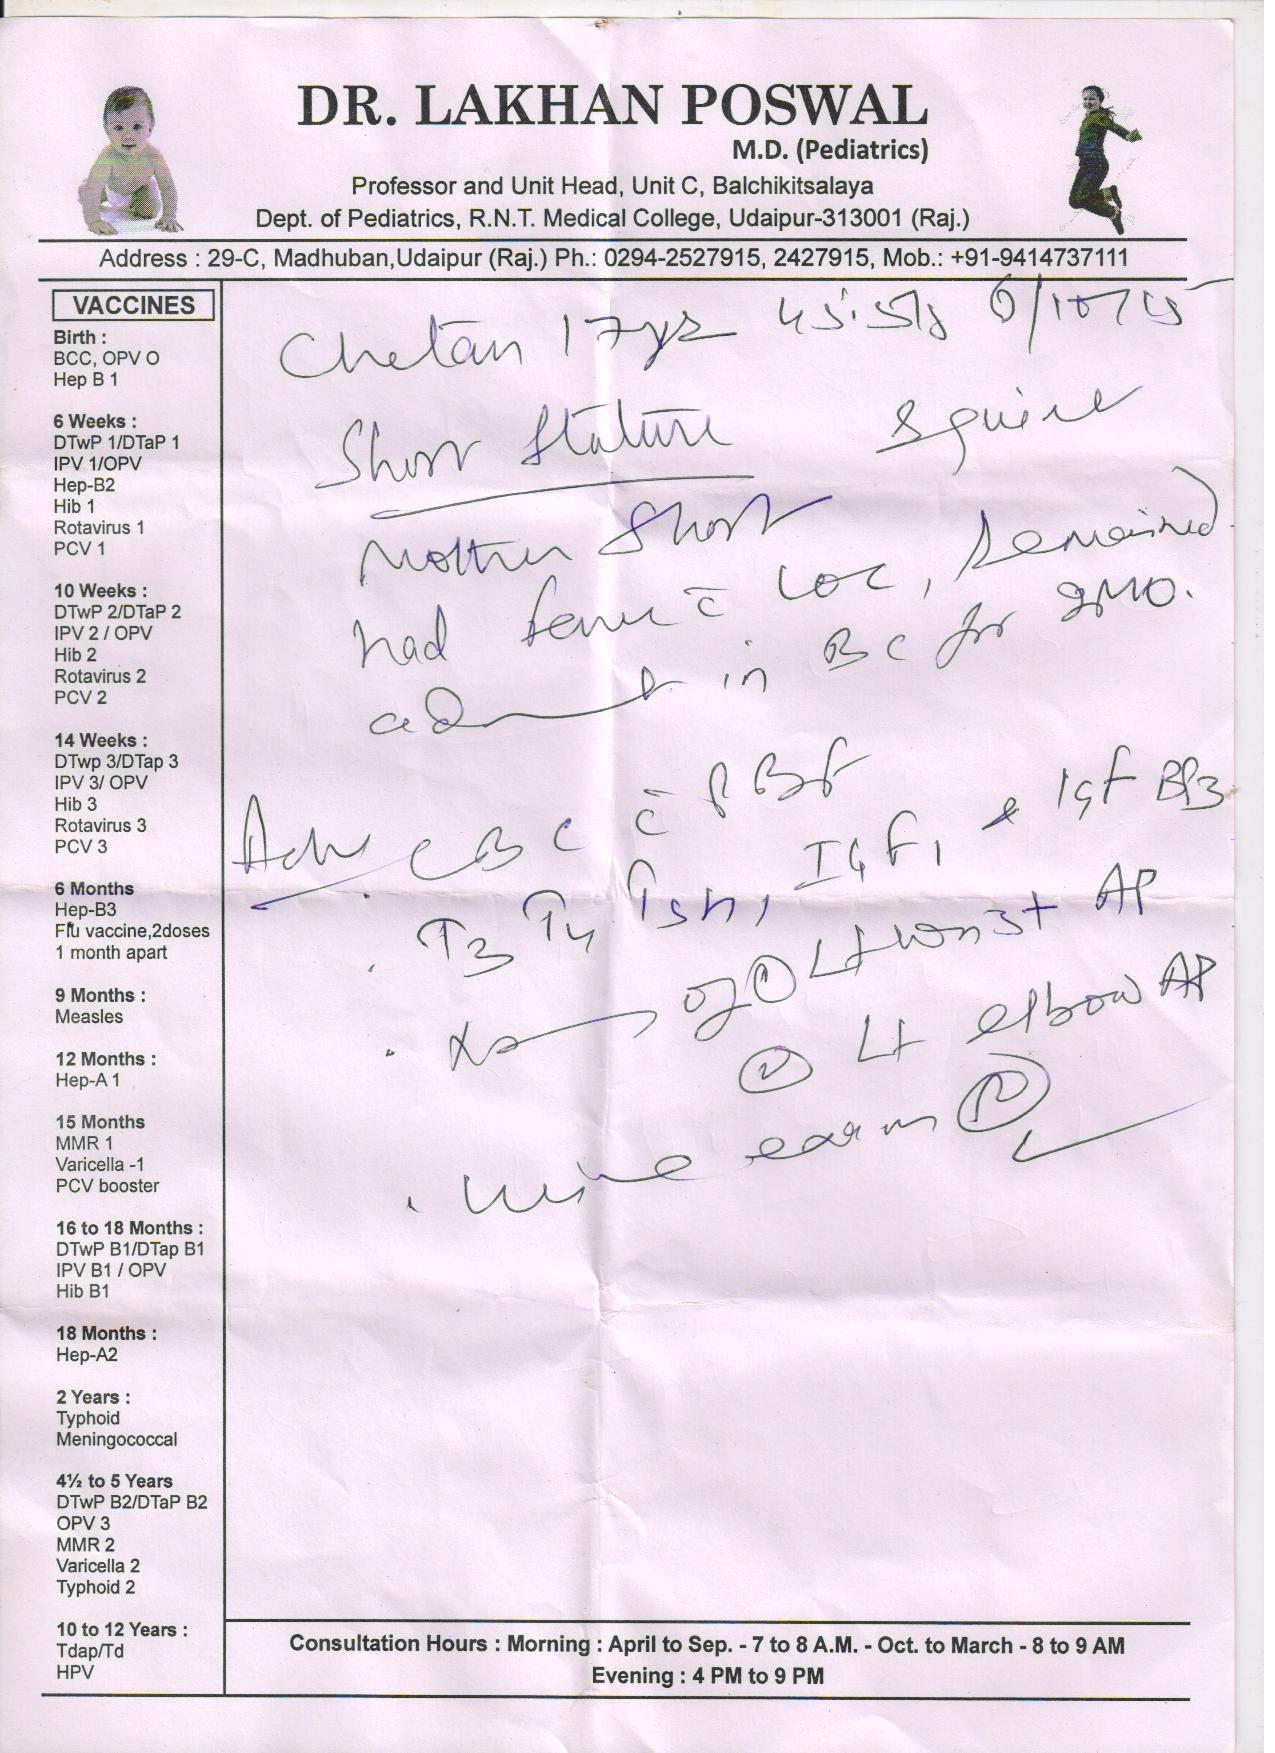 DR. LAKHAN POSWAL
M.D. (Pediatrics)
Professor and Unit Head, Unit C, Balchikitsalaya
Dept. of Pediatrics, R.N.T. Medical College, Udaipur-313001 (Raj.)
Address : 29-C, Madhuban,Udaipur (Raj.) Ph.: 0294-2527915, 2427915, Mob.: +91-9414737111
VACCINES
Birth :
BCC, OPV O
Hep B 1
6 Weeks :
DTwP 1/DTaP 1
IPV 1/OPV
Hep-B2
Hib 1
Rotavirus 1
PCV 1
10 Weeks :
DTwP 2/DTaP 2
IPV 2 / OPV
Hib 2
Rotavirus 2
PCV 2
14 Weeks :
DTwp 3/DTap 3
IPV 3/ OPV
Hib 3
Rotavirus 3
PCV 3
6 Months
Hep-B3
Flu vaccine,2doses
1 month apart
9 Months :
Measles
12 Months :
Hep-A 1
15 Months
MMR 1
Varicella -1
PCV booster
16 to 18 Months :
DTwP B1/DTap B1
IPV B1 / OPV
Hib B1
18 Months :
Hep-A2
2 Years :
Typhoid
Meningococcal
4½ to 5 Years
DTwP B2/DTaP B2
OPV 3
MMR 2
Varicella 2
Typhoid 2
10 to 12 Years :
Tdap/Td
HPV
Chetan 17yrs
Short Stature
Mother Short
had fever c̄ LOC, Remained
admit in BC for 2MO.
Adv CBC c̄ PBF
T3 T4 TSH, IGF1 & IGF BP3
of ① Lt wrist AP
② Lt elbow AP
urine exam
Consultation Hours : Morning : April to Sep. - 7 to 8 A.M. - Oct. to March - 8 to 9 AM
Evening : 4 PM to 9 PM